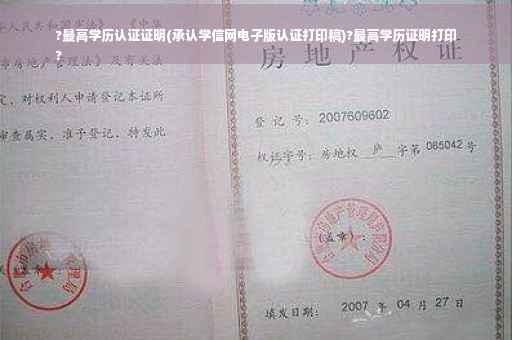 ?最高学历认证证明(承认学信网电子版认证打印稿)?最高学历证明打印
?
华人民共和国
市房地产管理法》及有关法
定，对权利人申请登记本证所
审查属实，准予登记，特发此
房地产权证
登 记 号：2007609602
权证字号：房地权 庐 字第 085042 号
(盖章)：
填发日期： 2007 年 04 月 27 日